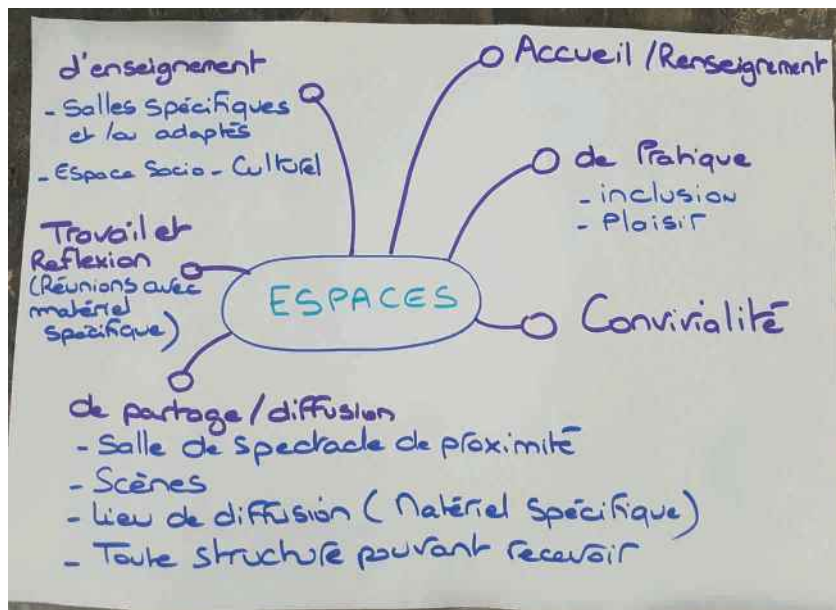 d'enseignement
- Salles Spécifiques
et /ou adaptés
- Espace Socio-Culturel
Accueil /Renseignement
de Pratique
- inclusion
- Plaisir
Travail et
Reflexion
(Réunions avec
matériel
spécifique)
ESPACES
Convivialité
de partage/diffusion
- Salle de spectacle de proximité
- Scènes
- Lieu de diffusion (Matériel Spécifique)
- Toute structure pouvant recevoir